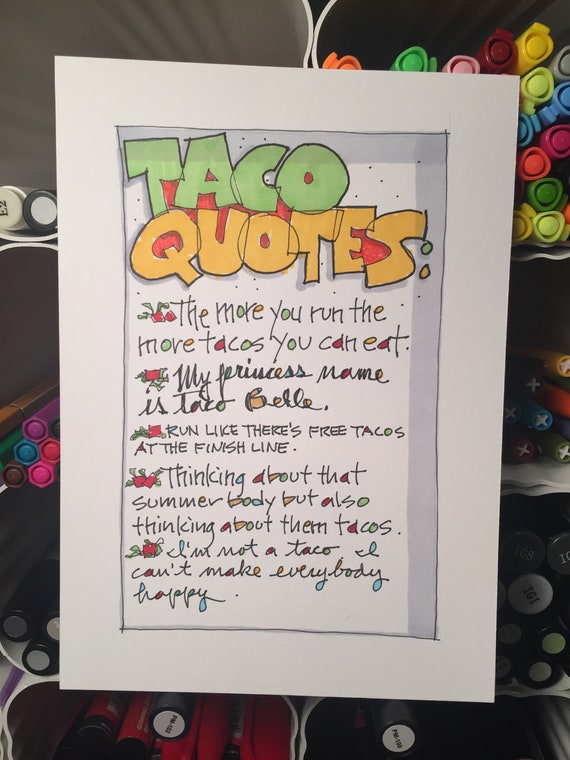 TACO
QUOTES:
The more you run the
more tacos you can eat.
My princess name
is Taco Belle.
RUN LIKE THERE'S FREE TACOS
AT THE FINISH LINE.
Thinking about that
summer body but also
thinking about them tacos.
I'm not a taco. I
can't make everybody
happy.
IG8
IG1
PM-102
PM-100